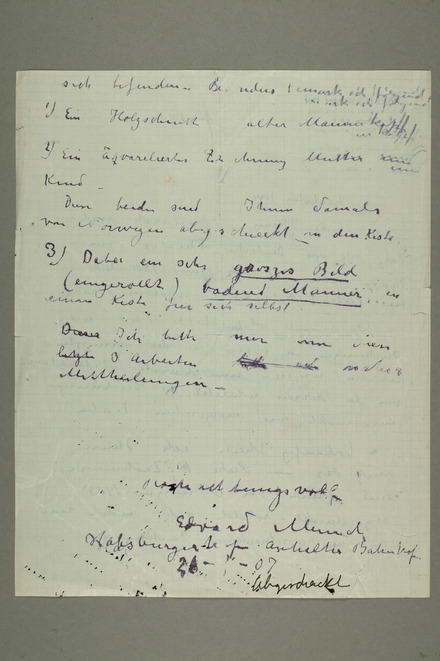 sich befinden – Be nders bemerk ich folgend
1) Ein Holzschnitt alter Mann
2) Ein Aquarelliertes Zeichnung Mutter und
Kind –
Diese beiden sind Ihnen damals
von Norwegen abgeschickt in der Kiste
3) Dabei ein sehr grosses Bild
(eingerollt) badend Männer in
einer Kiste für sich selbst
Dieses Ich bitte mir von diesen
letzte 3 Arbeiten
Mittheilungen –
Hochachtungsvoll
Edvard Munch
Habsburgerhof Anhalter Bahnhof
07
Abgeschickt